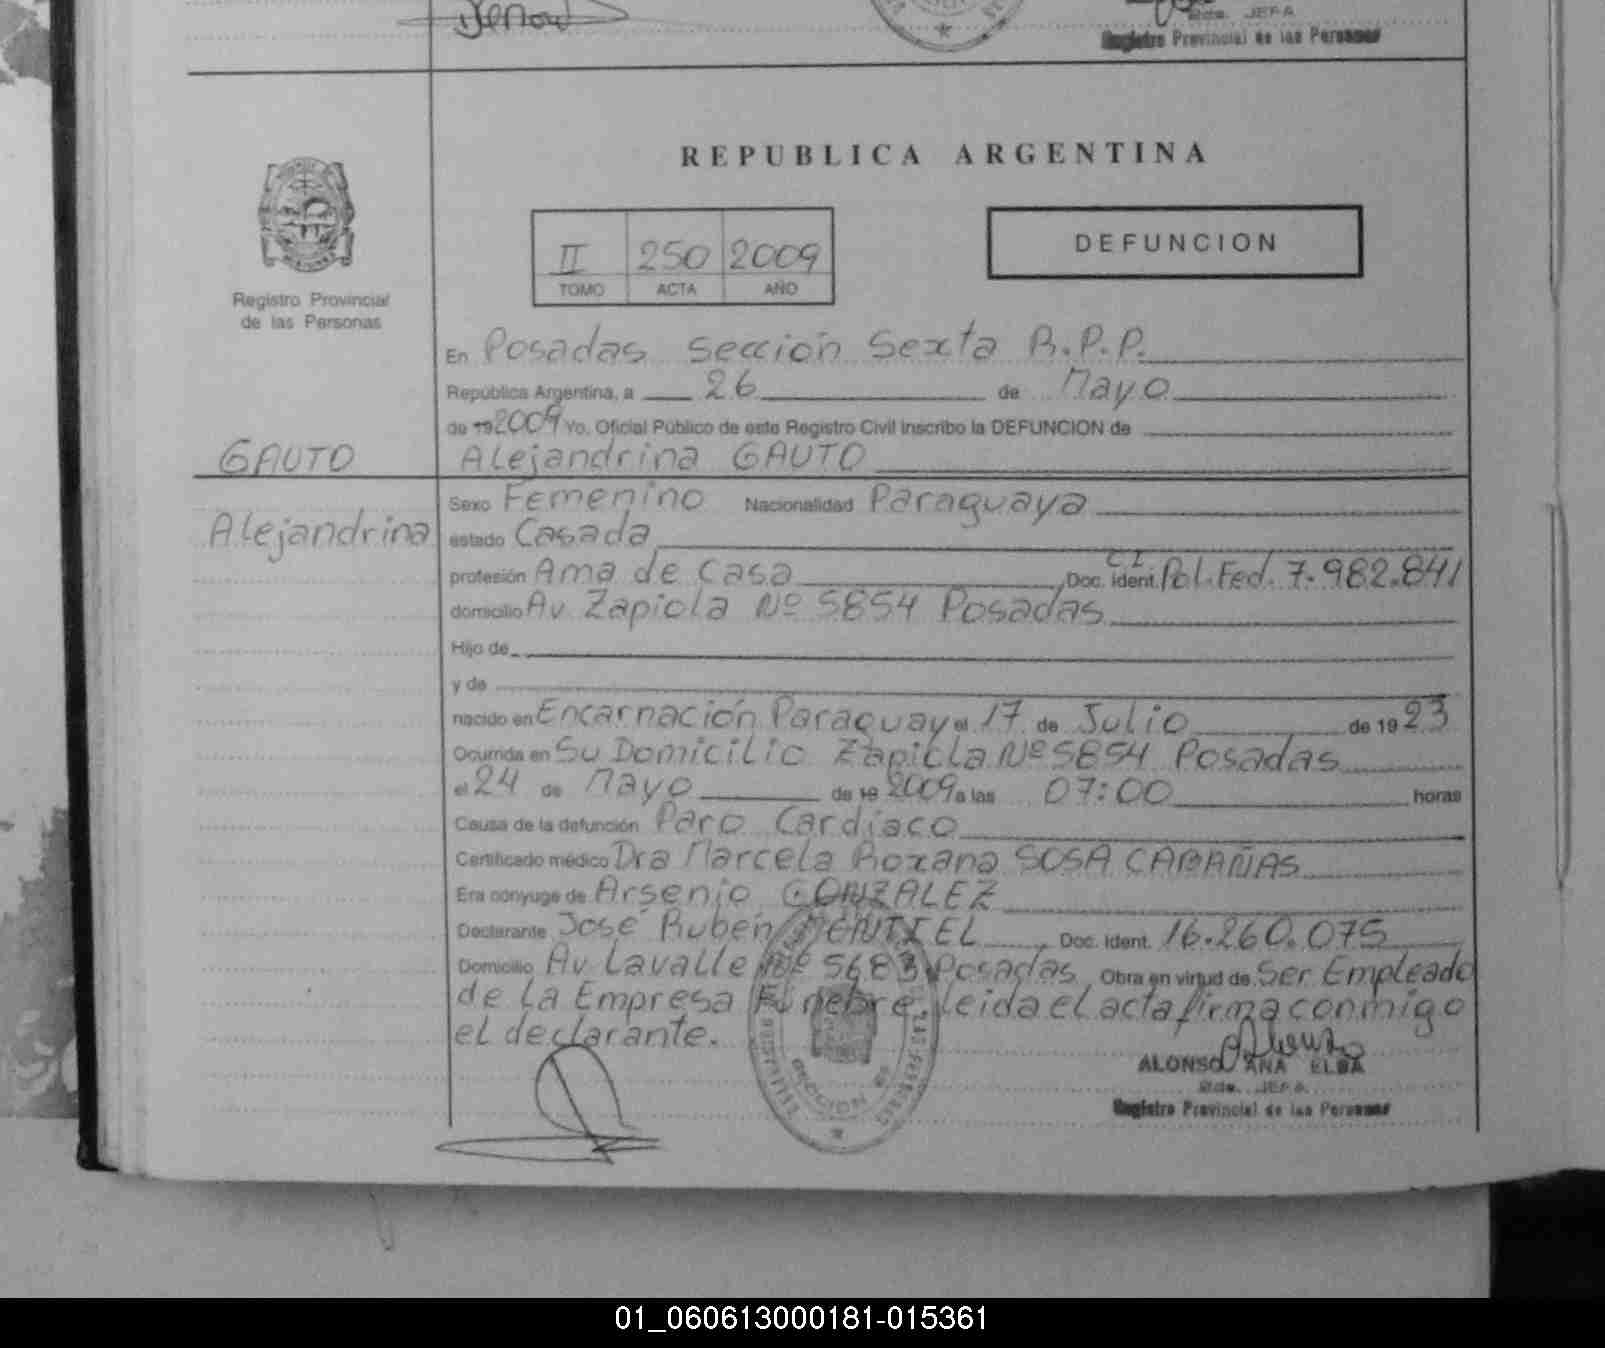 Stda. JEFA
Registro Provincial de las Personas
REPUBLICA ARGENTINA
II 250 2009
TOMO ACTA AÑO
DEFUNCION
Registro Provincial
de las Personas
En Posadas Sección Sexta R.P.P.
República Argentina, a 26 de Mayo
de 19 2009 Yo, Oficial Público de este Registro Civil inscribo la DEFUNCION de
GAUTO
Alejandrina GAUTO
Sexo Femenino Nacionalidad Paraguaya
Alejandrina
estado Casada
profesión Ama de Casa Doc. ident. C.I. Pol. Fed. 7.982.841
domicilio Av. Zapiola Nº 5854 Posadas
Hijo de
y de
nacido en Encarnación Paraguay el 17 de Julio de 19 23
Ocurrida en Su Domicilio Zapiola Nº 5854 Posadas
el 24 de Mayo de 19 2009 a las 07:00 horas
Causa de la defunción Paro Cardíaco
Certificado médico Dra Marcela Roxana SOSA CABAÑAS
Era cónyuge de Arsenio GONZALEZ
Declarante José Rubén Doc. Ident. 16.260.075
Domicilio Av. Lavalle Nº 5683 Posadas Obra en virtud de Ser Empleado
de la Empresa Fúnebre leida el acta firma conmigo
el declarante.
ALONSO ANA ELBA
Stda. JEFA
Registro Provincial de las Personas
01_060613000181-015361